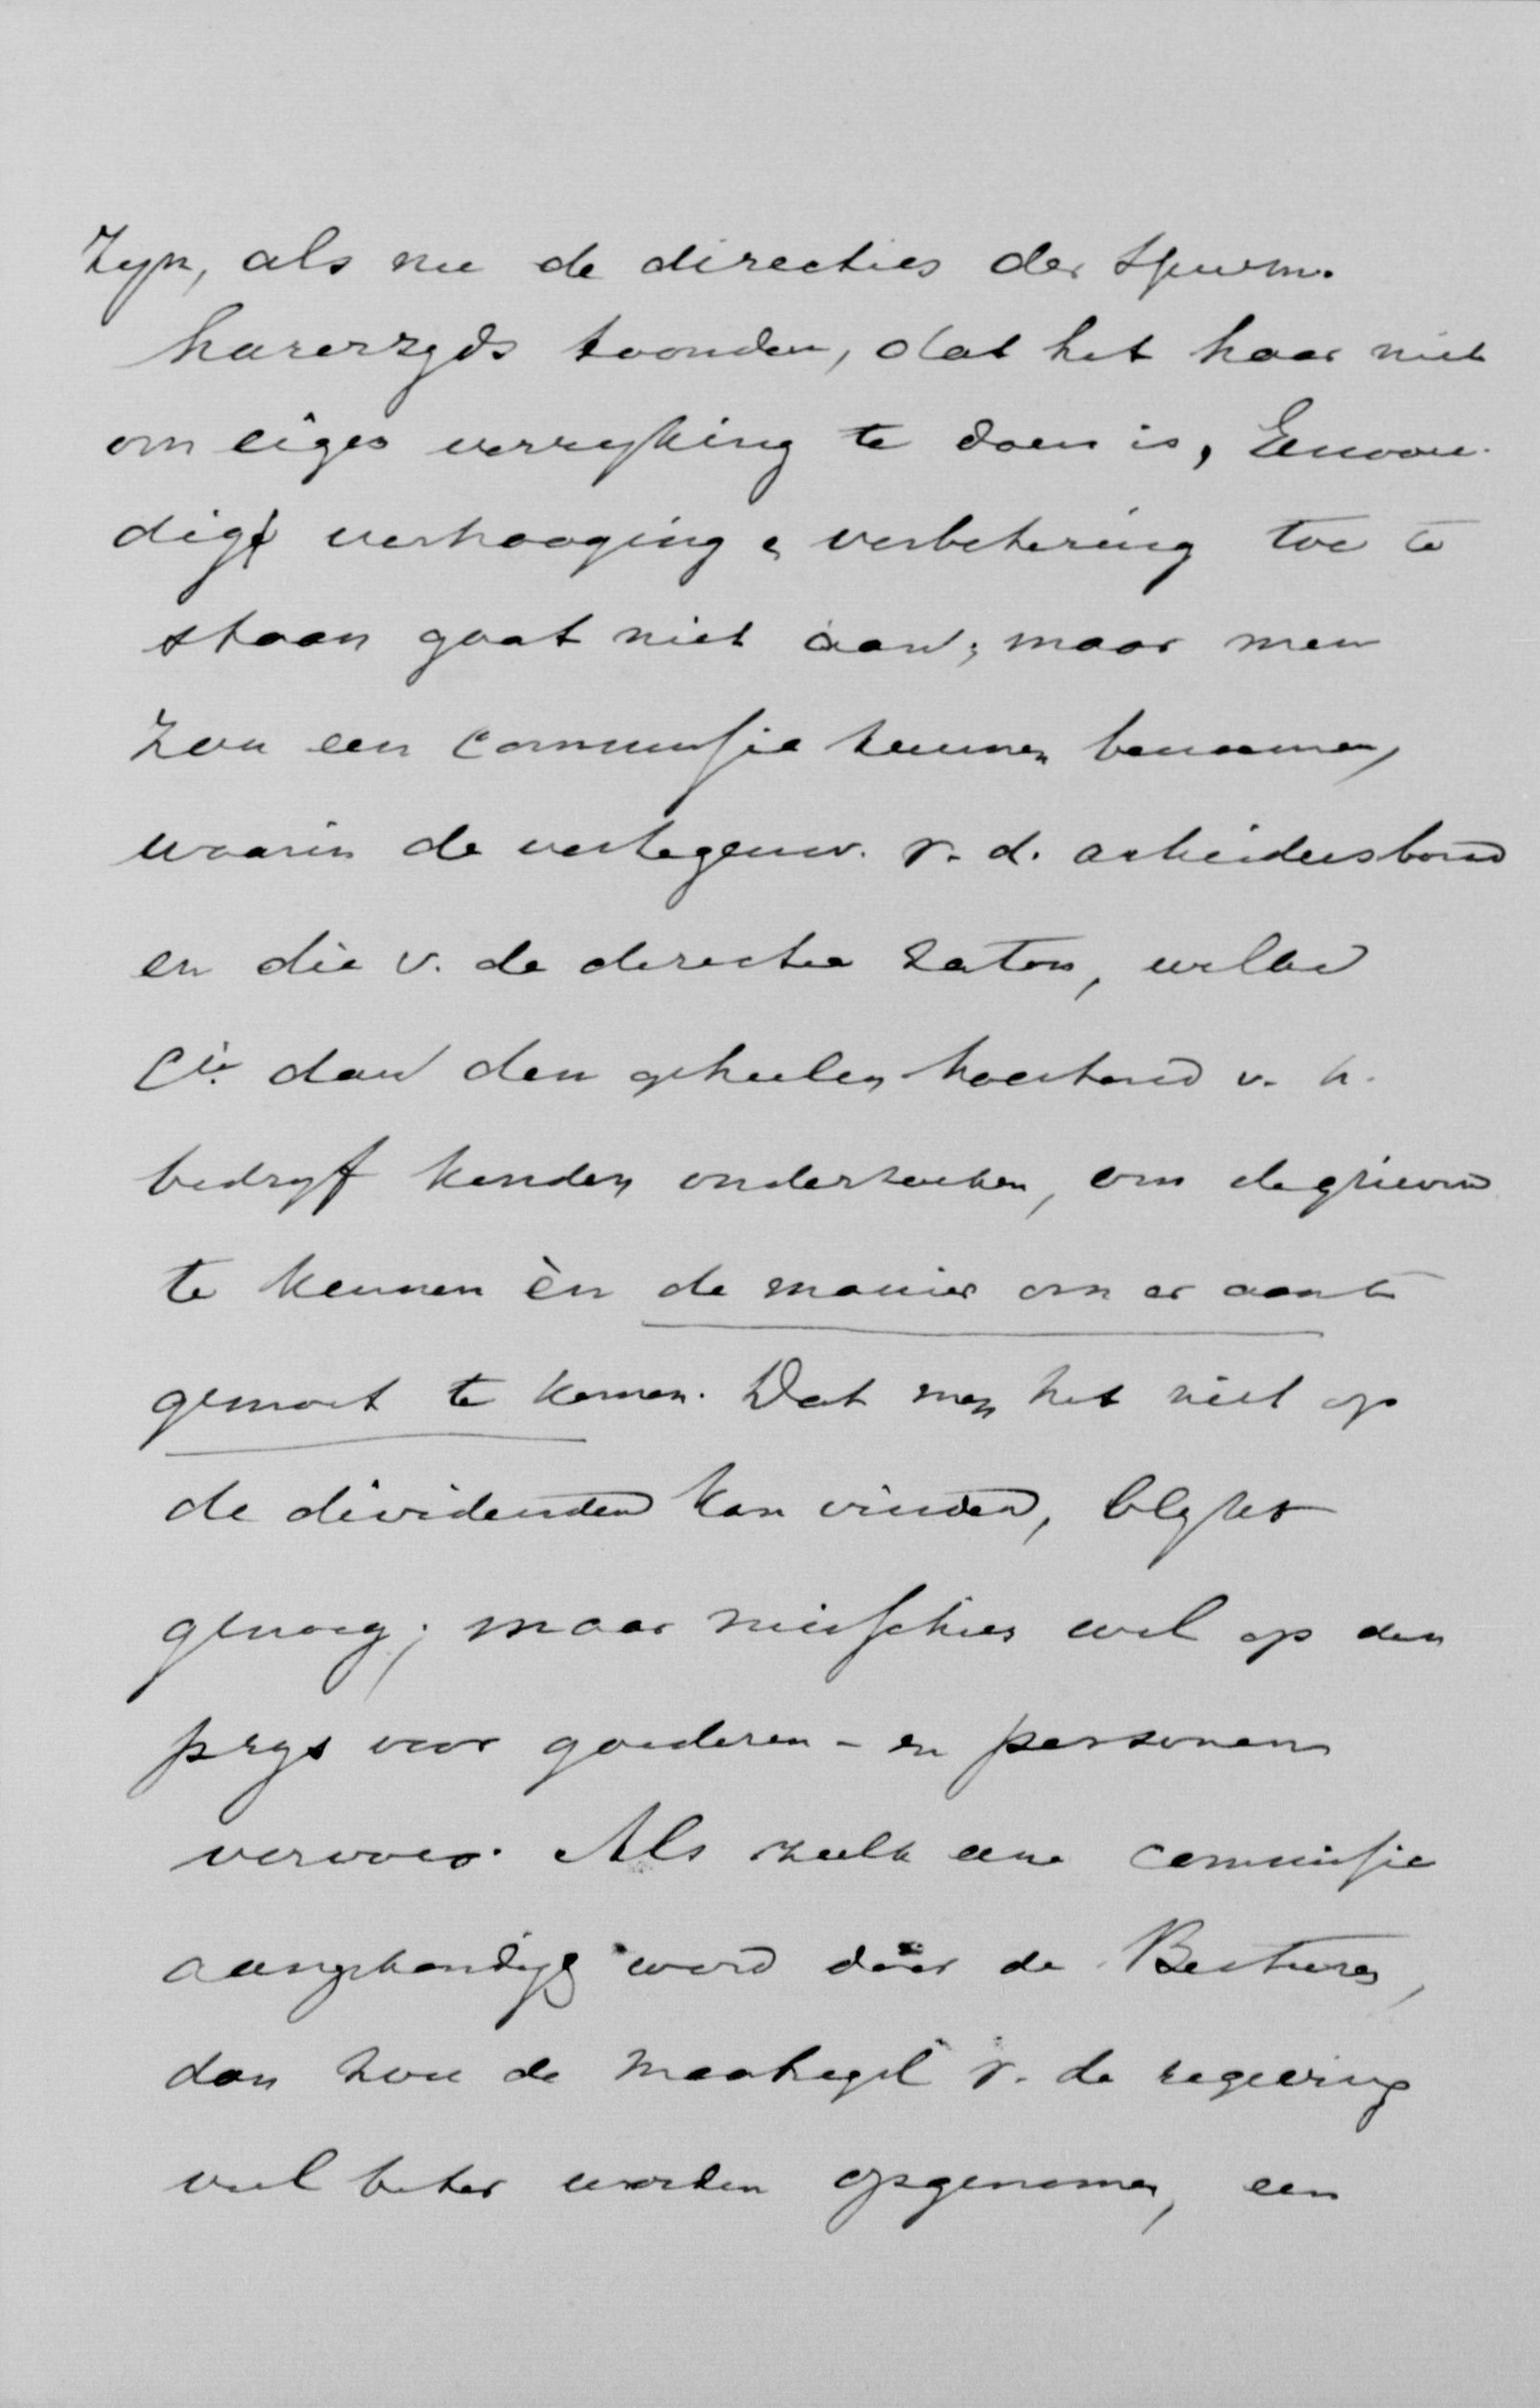 zyn, als nu de directies der spoorm.
harerzyds toonden, dat het haar niet
om eigen verryking te doen is, Eenvou-
dig verhooging & verbetering toe te
staan gaat niet aan; maar men
zou een commissie kunnen benoemen,
waarin de vertegenw. v. d. arbeidersbond
en die v. de directie zaten, welke
Cie. dan den geheelen toestand v. h.
bedryf konden onderzoeken, om de grieven
te kennen èn de manier om er aan te
gemoet te komen. Dat men het niet op
de dividenden kan vinden, blykt
genoeg; maar misschien wel op den
prys voor goederen- en personen
vervoer. Als zulk eene commissie
aangekondigd werd dóór de Besturen,
dan zou de maatregel v. de regeering
veel beter worden opgenomen, een